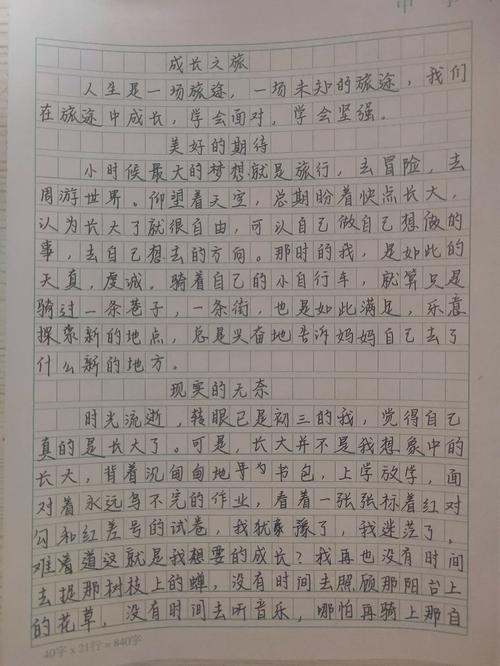 成长之旅
人生是一场旅途，一场未知的旅途，我们
在旅途中成长，学会面对，学会坚强。
美好的期待
小时候最大的梦想就是旅行，去冒险，去
周游世界。仰望着天空，总期盼着快点长大，
认为长大了就很自由，可认自己做自己想做的
事，去自己想去的方向。那时的我，是如此的
天真，虔诚。骑着自己的小自行车，就算只是
骑过一条巷子，一条街，也是如此满足，乐意
探索新的地点，总是兴奋地告诉妈妈自己去了
什么新的地方。
现实的无奈
时光流逝，转眼已是初三的我，觉得自己
真的是长大了。可是，长大并不是我想象中的
长大，背着沉甸甸地书包，上学放学，面
对着永远写不完的作业，看着一张张标着红对
勾和红差号的试卷，我犹豫了，我迷茫了。
难着道这就是我想要的成长？我再也没有时间
去捉那树枝上的蝉，没有时间去照顾那阳台上
的花草，没有时间去听音乐，哪怕再骑上那自
40字×21行=840字